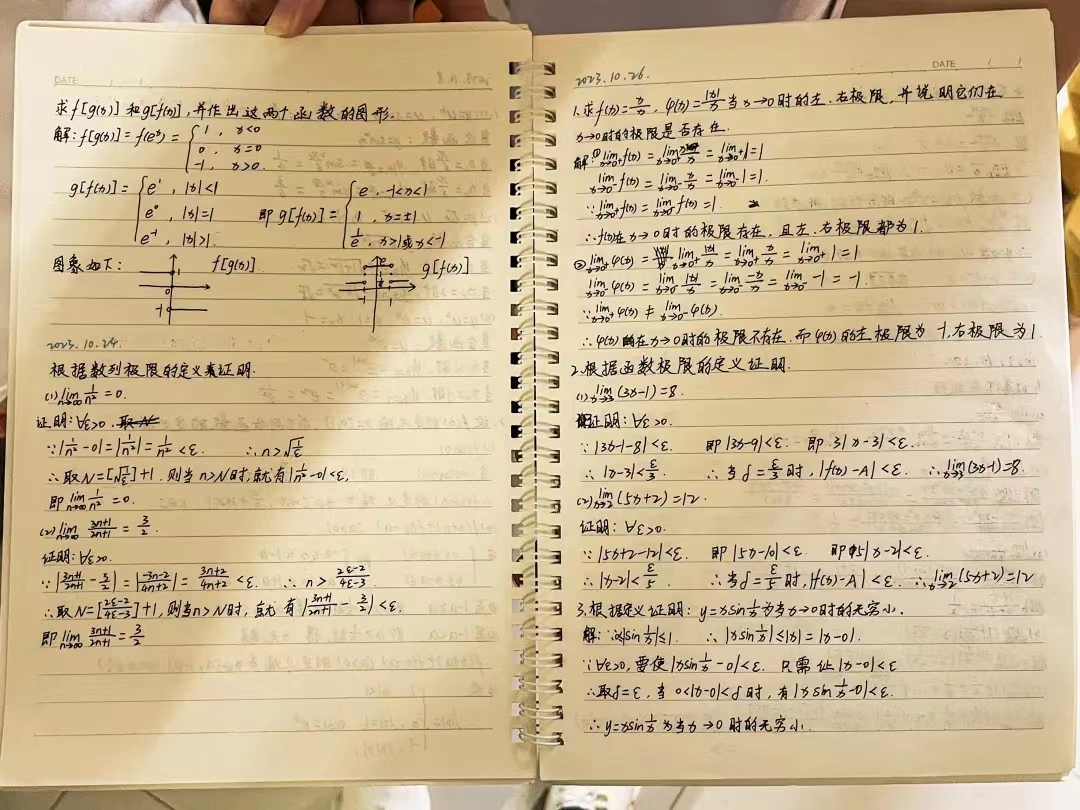 DATE / /
求f[g(x)]和g[f(x)],并作出这两个函数的图形.
解:f[g(x)]=f(e^x)={1, x<0
0, x=0
-1, x>0.
g[f(x)]={e^1, |x|<1
e^0, |x|=1 即g[f(x)]={e, -1<x<1
1, x=±1
e^-1, |x|>1. 1/e, x>1或x<-1
图象如下: f[g(x)] g[f(x)]
2023.10.24.
根据数列极限的定义证明.
(1) lim n→∞ 1/n²=0.
证明:∀ε>0.
∵|1/n²-0|=|1/n²|=1/n²<ε. ∴n>√(1/ε)
∴取N=[√(1/ε)]+1.则当n>N时,就有|1/n²-0|<ε,
即 lim n→∞ 1/n²=0.
(2) lim n→∞ (3n+1)/(2n+1)=3/2.
证明:∀ε>0.
∵|(3n+1)/(2n+1)-3/2|=|(-3n-2)/(4n+2)|=(3n+2)/(4n+2)<ε. ∴n>(2ε-2)/(4ε-3).
∴取N=[(2ε-2)/(4ε-3)]+1,则当n>N时,就有|(3n+1)/(2n+1)-3/2|<ε.
即 lim n→∞ (3n+1)/(2n+1)=3/2
DATE / /
2023.10.26.
1.求f(x)=x/x, φ(x)=|x|/x当x→0时的左、右极限,并说明它们在
x→0时的极限是否存在.
解:① lim x→0+ f(x)=lim x→0+ x/x=lim x→0+ 1=1
lim x→0- f(x)=lim x→0- x/x=lim x→0- 1=1.
∵lim x→0+ f(x)=lim x→0- f(x)=1.
∴f(x)在x→0时的极限存在,且左、右极限都为1.
② lim x→0+ φ(x)=lim x→0+ |x|/x=lim x→0+ x/x=lim x→0+ 1=1
lim x→0- φ(x)=lim x→0- |x|/x=lim x→0- -x/x=lim x→0- -1=-1.
∵lim x→0+ φ(x)≠lim x→0- φ(x).
∴φ(x)在x→0时的极限不存在.而φ(x)的左极限为-1,右极限为1.
2.根据函数极限的定义证明.
(1) lim x→3 (3x-1)=8.
证明:∀ε>0.
∵|3x-1-8|<ε. 即|3x-9|<ε. 即3|x-3|<ε.
∴|x-3|<ε/3. ∴当δ=ε/3时,|f(x)-A|<ε. ∴lim x→3 (3x-1)=8.
(2) lim x→2 (5x+2)=12.
证明:∀ε>0.
∵|5x+2-12|<ε. 即|5x-10|<ε. 即5|x-2|<ε.
∴|x-2|<ε/5. ∴当δ=ε/5时,|f(x)-A|<ε. ∴lim x→2 (5x+2)=12
3.根据定义证明:y=xsin1/x为当x→0时的无穷小.
解:∵|sin1/x|≤1. ∴|xsin1/x|≤|x|=|x-0|.
∵∀ε>0,要使|xsin1/x-0|<ε. 只需让|x-0|<ε
∴取δ=ε,当0<|x-0|<δ时,有|xsin1/x-0|<ε.
∴y=xsin1/x为当x→0时的无穷小.